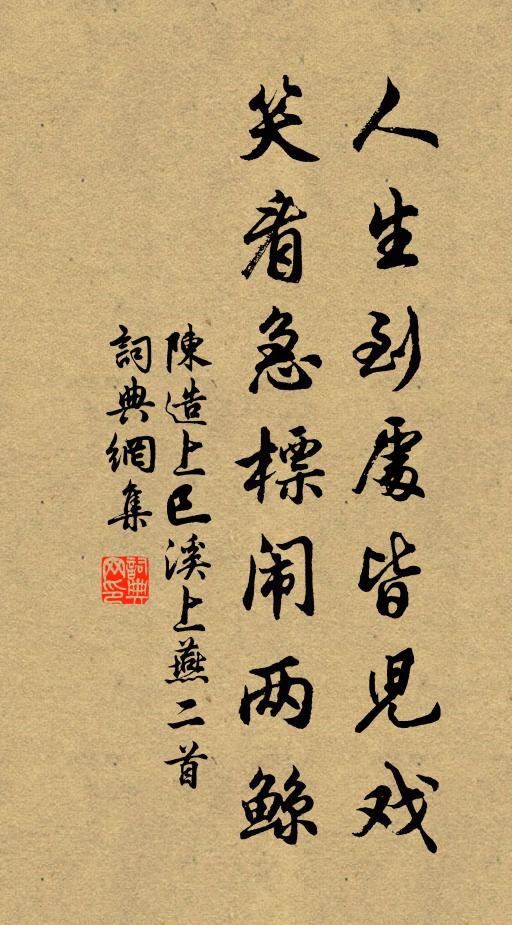 人生到處皆兒戏
笑看急標闹两鲸
陳造上巳溪上燕二首
詞典網集
詞典網印